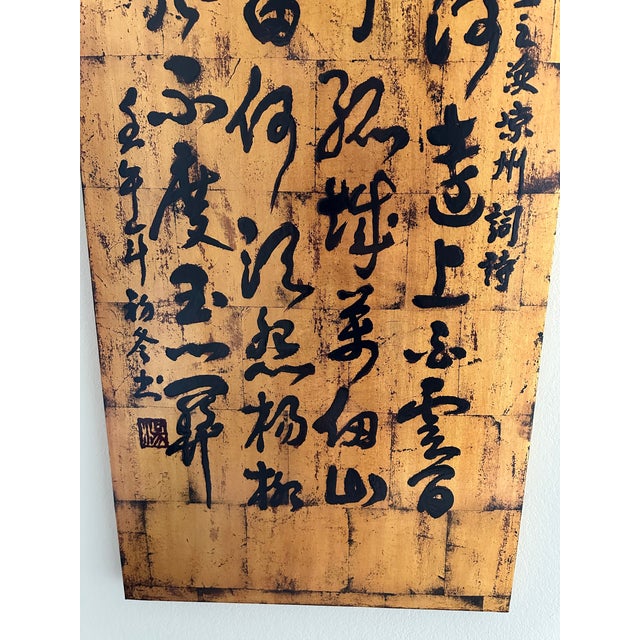 之渙涼州詞詩
河遠上白雲間
孤城萬仞山
何須怨楊柳
不度玉門關
壬午年初冬書